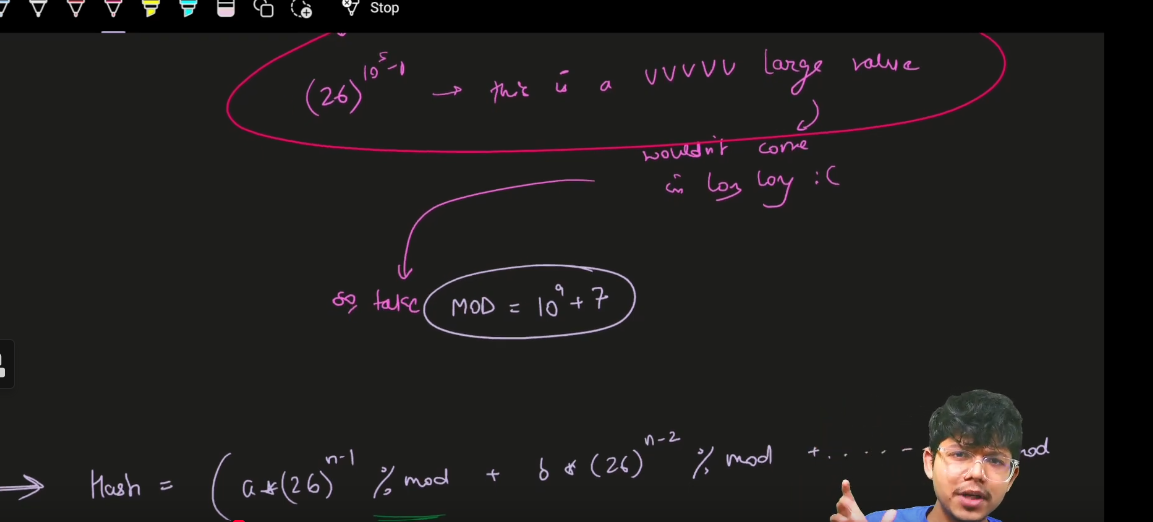 Stop
(26)^{10^5-1} → this is a vvvvv large value
wouldn't come
in long long :(
so, take MOD = 10^9 + 7
⇒ Hash = (a*(26)^{n-1} % mod + b * (26)^{n-2} % mod + . . . . - mod